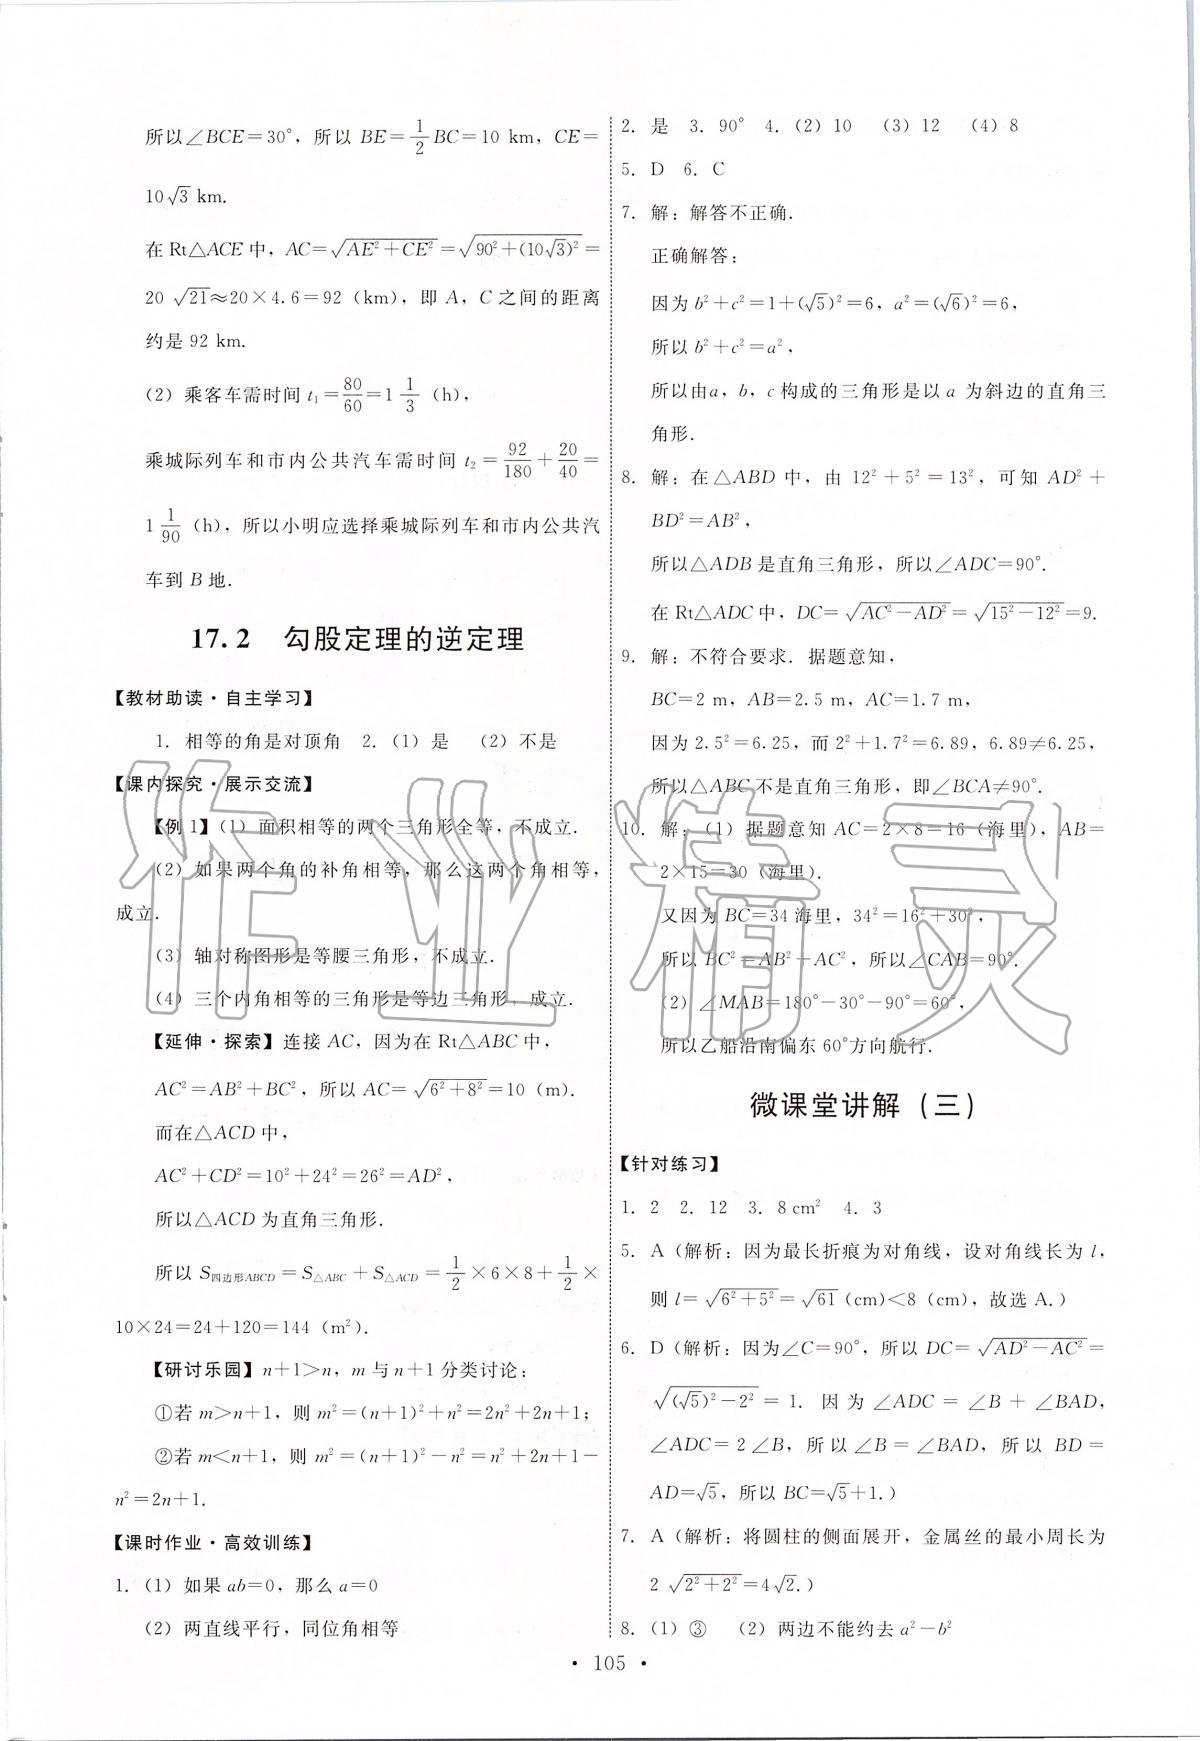 所以∠BCE=30°，所以 BE=1/2 BC=10 km，CE=
10√3 km.
在 Rt△ACE 中，AC=√(AE²+CE²)=√(90²+(10√3)²)=
20√21≈20×4.6=92（km），即 A，C 之间的距离
约是 92 km.
（2）乘客车需时间 t₁=80/60=1 1/3（h），
乘城际列车和市内公共汽车需时间 t₂=92/180+20/40=
1 1/90（h），所以小明应选择乘城际列车和市内公共汽
车到 B 地.
17.2 勾股定理的逆定理
【教材助读·自主学习】
1. 相等的角是对顶角 2.（1）是 （2）不是
【课内探究·展示交流】
【例 1】（1）面积相等的两个三角形全等，不成立.
（2）如果两个角的补角相等，那么这两个角相等，
成立.
（3）轴对称图形是等腰三角形，不成立.
（4）三个内角相等的三角形是等边三角形，成立.
【延伸·探索】连接 AC，因为在 Rt△ABC 中，
AC²=AB²+BC²，所以 AC=√(6²+8²)=10（m）.
而在△ACD 中，
AC²+CD²=10²+24²=26²=AD²，
所以△ACD 为直角三角形.
所以 S四边形ABCD=S△ABC+S△ACD=1/2×6×8+1/2×
10×24=24+120=144（m²）.
【研讨乐园】n+1>n，m 与 n+1 分类讨论：
①若 m>n+1，则 m²=(n+1)²+n²=2n²+2n+1；
②若 m<n+1，则 m²=(n+1)²-n²=n²+2n+1-
n²=2n+1.
【课时作业·高效训练】
1.（1）如果 ab=0，那么 a=0
（2）两直线平行，同位角相等
2. 是 3. 90° 4.（2）10 （3）12 （4）8
5. D 6. C
7. 解：解答不正确.
正确解答：
因为 b²+c²=1+(√5)²=6，a²=(√6)²=6，
所以 b²+c²=a²，
所以由a，b，c 构成的三角形是以 a 为斜边的直角三
角形.
8. 解：在△ABD 中，由 12²+5²=13²，可知 AD²+
BD²=AB²，
所以△ADB 是直角三角形，所以∠ADC=90°.
在 Rt△ADC 中，DC=√(AC²-AD²)=√(15²-12²)=9.
9. 解：不符合要求. 据题意知，
BC=2 m，AB=2.5 m，AC=1.7 m，
因为 2.5²=6.25，而 2²+1.7²=6.89，6.89≠6.25，
所以△ABC 不是直角三角形，即∠BCA≠90°.
10. 解：（1）据题意知 AC=2×8=16（海里），AB=
2×15=30（海里）.
又因为 BC=34 海里，34²=16²+30²，
所以 BC²=AB²+AC²，所以∠CAB=90°.
（2）∠MAB=180°-30°-90°=60°，
所以乙船沿南偏东 60°方向航行.
微课堂讲解（三）
【针对练习】
1. 2 2. 12 3. 8 cm² 4. 3
5. A（解析：因为最长折痕为对角线，设对角线长为 l，
则 l=√(6²+5²)=√61(cm)<8（cm），故选 A.）
6. D（解析：因为∠C=90°，所以 DC=√(AD²-AC²)=
√((√5)²-2²)=1. 因为∠ADC=∠B+∠BAD，
∠ADC=2∠B，所以∠B=∠BAD，所以 BD=
AD=√5，所以 BC=√5+1.）
7. A（解析：将圆柱的侧面展开，金属丝的最小周长为
2√(2²+2²)=4√2.）
8.（1）③ （2）两边不能约去 a²-b²
· 105 ·
作业精灵